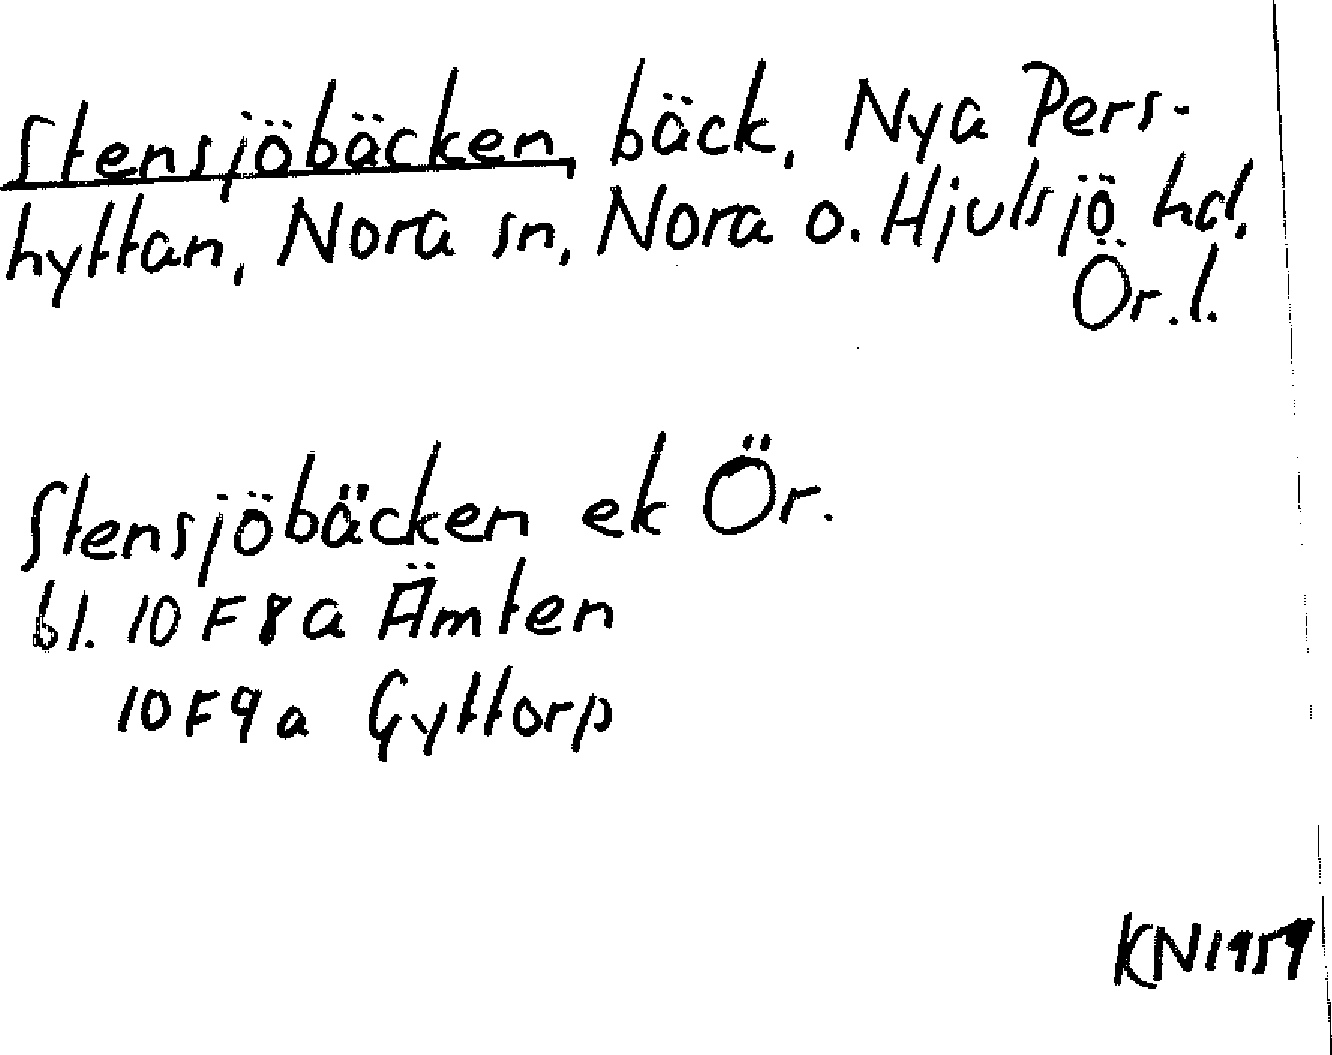 Stensjöbäcken, bäck, Nya Pers-
hyttan, Nora sn, Nora o. Hjulsjö hd,
Ör. l.
Stensjöbäcken ek Ör.
bl. 10 F 8 a Ämten
10 F 9 a Gyttorp